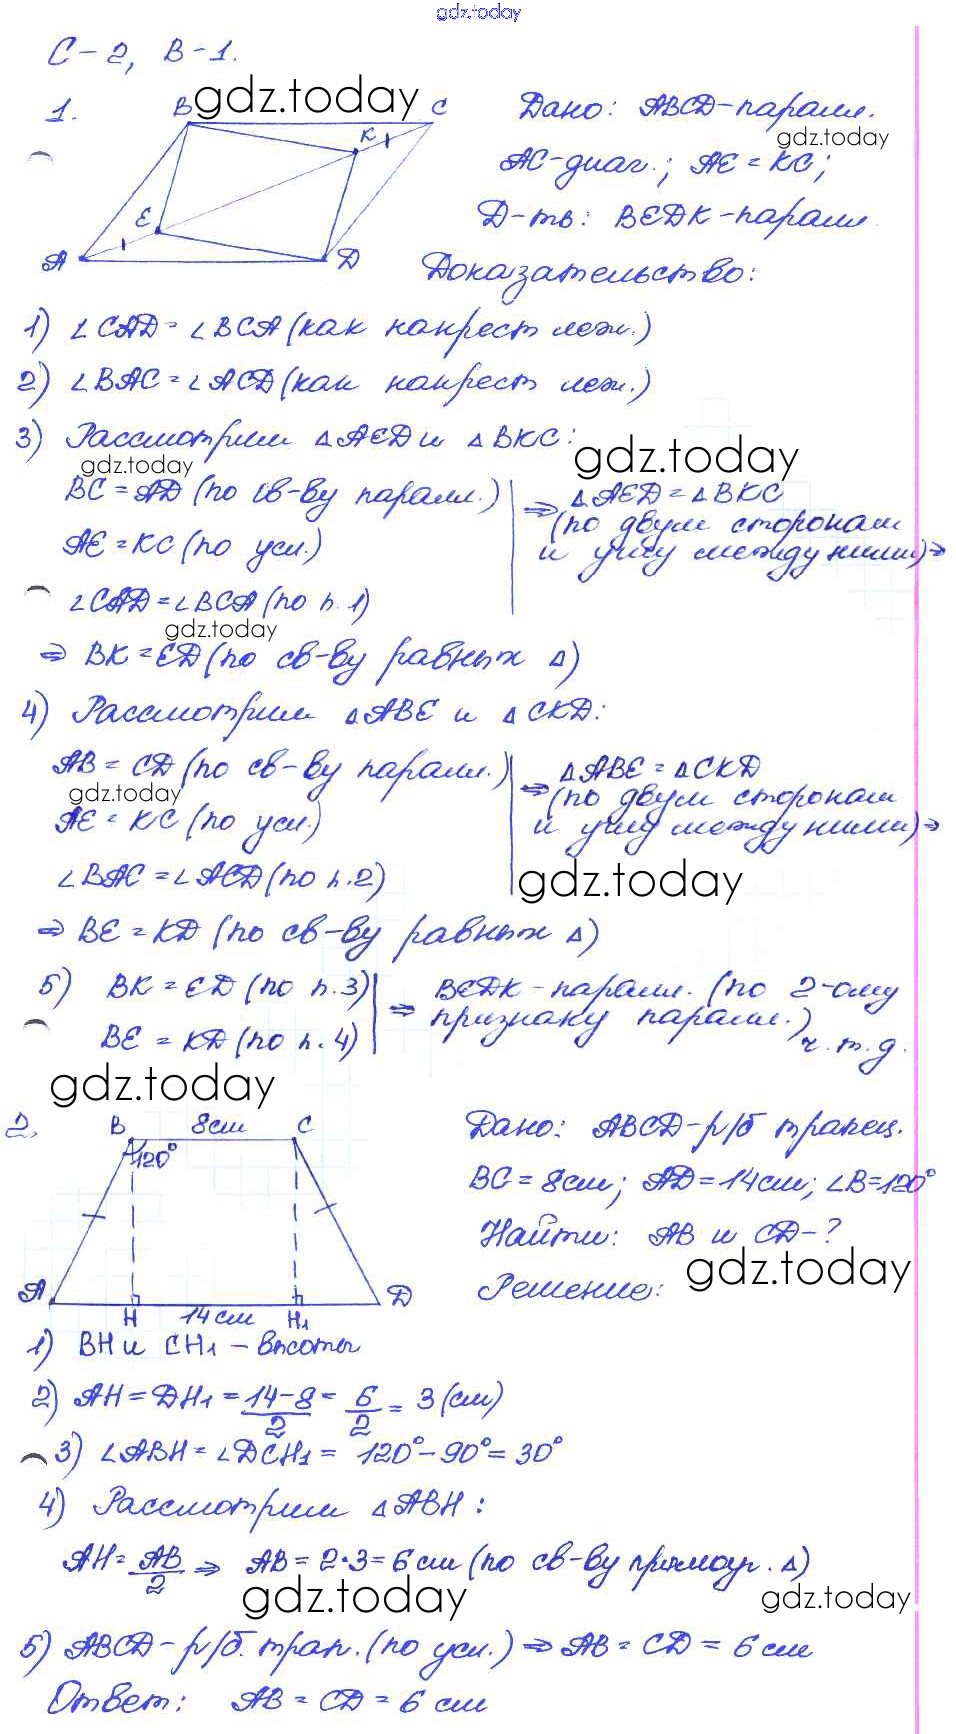 gdz.today
С-2, В-1.
1.
gdz.today
B C K E A D
Дано: ABCD-паралл.
gdz.today
AC-диаг.; AE = KC;
Д-ть: BEDK-паралл.
Доказательство:
1) ∠CAD = ∠BCA (как накрест леж.)
2) ∠BAC = ∠ACD (как накрест леж.)
3) Рассмотрим △AED и △BKC:
gdz.today
gdz.today
BC = AD (по св-ву паралл.)
⇒ △AED = △BKC
(по двум сторонам
AE = KC (по усл.)
и углу между ними) ⇒
∠CAD = ∠BCA (по п.1)
gdz.today
⇒ BK = ED (по св-ву равных △)
4) Рассмотрим △ABE и △CKD:
AB = CD (по св-ву паралл.)
⇒ △ABE = △CKD
gdz.today
(по двум сторонам
AE = KC (по усл.)
и углу между ними) ⇒
∠BAC = ∠ACD (по п.2)
gdz.today
⇒ BE = KD (по св-ву равных △)
5) BK = ED (по п.3)
⇒ BEDK - паралл. (по 2-ому
признаку паралл.)
BE = KD (по п.4)
ч.т.д.
gdz.today
2.
B 8см C
120°
A D
H 14см H₁
Дано: ABCD-р/б трапец.
BC = 8см; AD = 14см; ∠B = 120°
Найти: AB и CD-?
gdz.today
Решение:
1) BH и CH₁ - высоты
2) AH = DH₁ = 14-8/2 = 6/2 = 3 (см)
3) ∠ABH = ∠DCH₁ = 120° - 90° = 30°
4) Рассмотрим △ABH:
AH = AB/2 ⇒ AB = 2·3 = 6 см (по св-ву прямоуг. △)
gdz.today
gdz.today
5) ABCD - р/б. трап. (по усл.) ⇒ AB = CD = 6 см
Ответ: AB = CD = 6 см